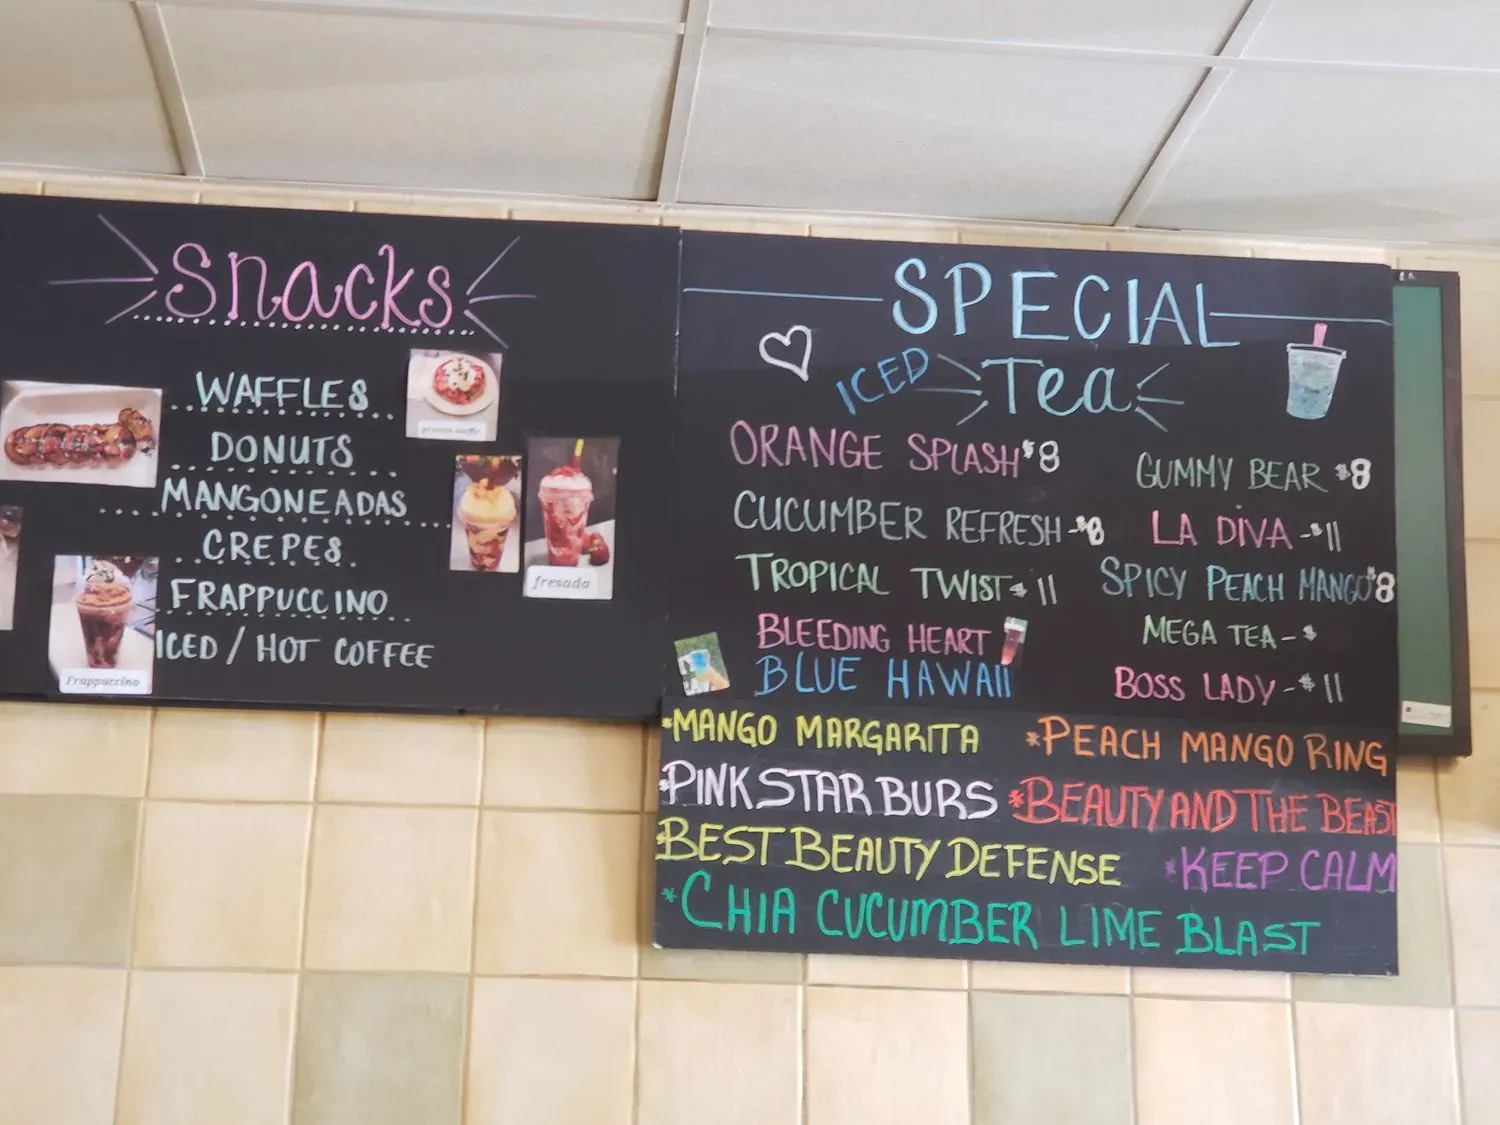 Snacks
WAFFLES
DONUTS
MANGONEADAS
CREPES
FRAPPUCCINO
ICED / HOT COFFEE
fresada
Frappuccino
SPECIAL
ICED Tea
ORANGE SPLASH $8
CUCUMBER REFRESH - $8
TROPICAL TWIST - 11
BLEEDING HEART
BLUE HAWAII
GUMMY BEAR $8
LA DIVA - $11
SPICY PEACH MANGO $8
MEGA TEA - $
BOSS LADY - $11
*MANGO MARGARITA
*PEACH MANGO RING
*PINK STAR BURS
*BEAUTY AND THE BEAST
BEST BEAUTY DEFENSE
*KEEP CALM
*CHIA CUCUMBER LIME BLAST